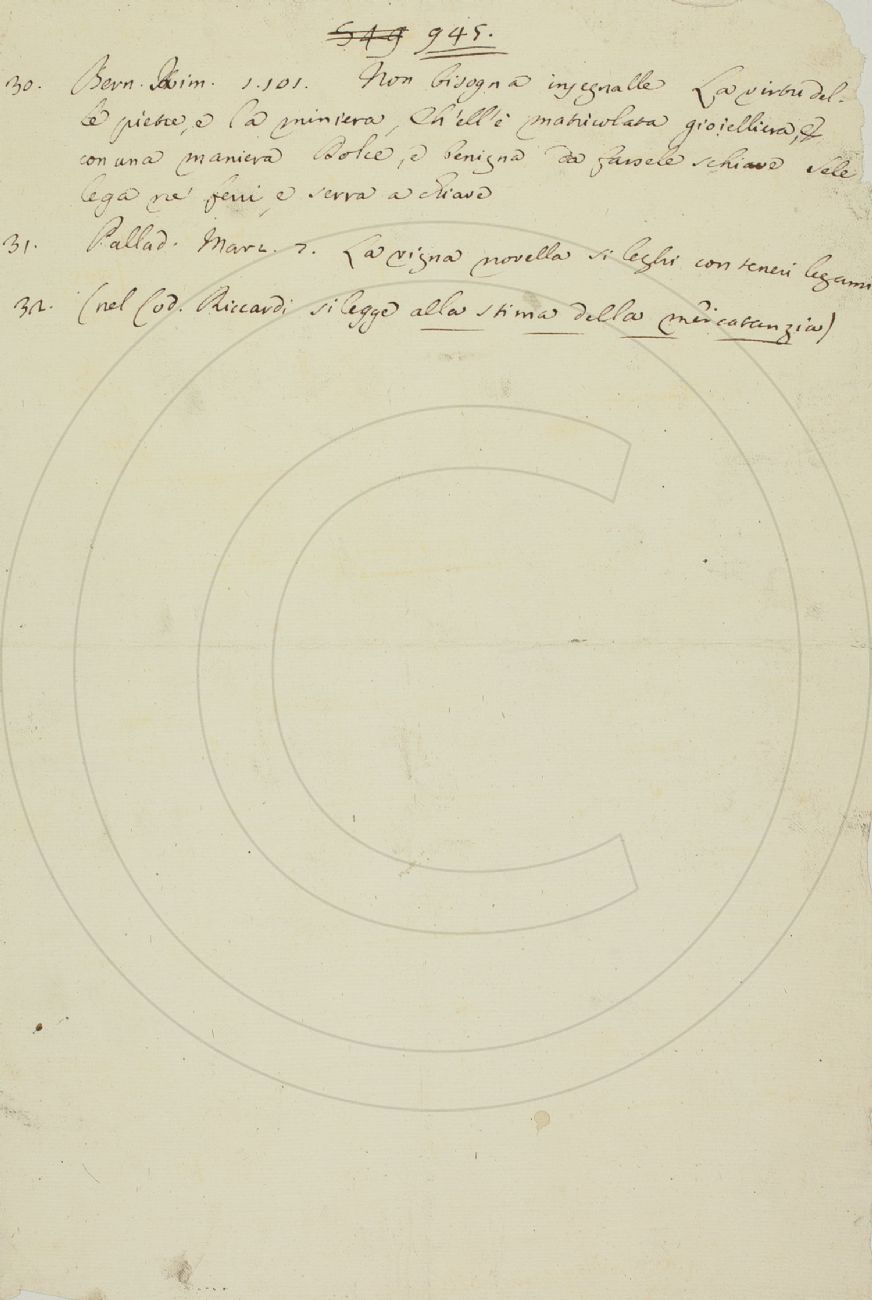 549 945.
30. Bern. Rim. 1.101. Non bisogna insegnalle La virtù del-
le pietre, e la miniera, Ch'ell'è matricolata gioielliera, Et
con una maniera Dolce, e benigna da farsele schiave Sele
lega ne' ferri, e serra a chiave
31. Pallad. Marz. 7. La vigna novella si leghi con teneri legami
32. (nel Cod. Riccardi si legge alla stima della mericatanzia)